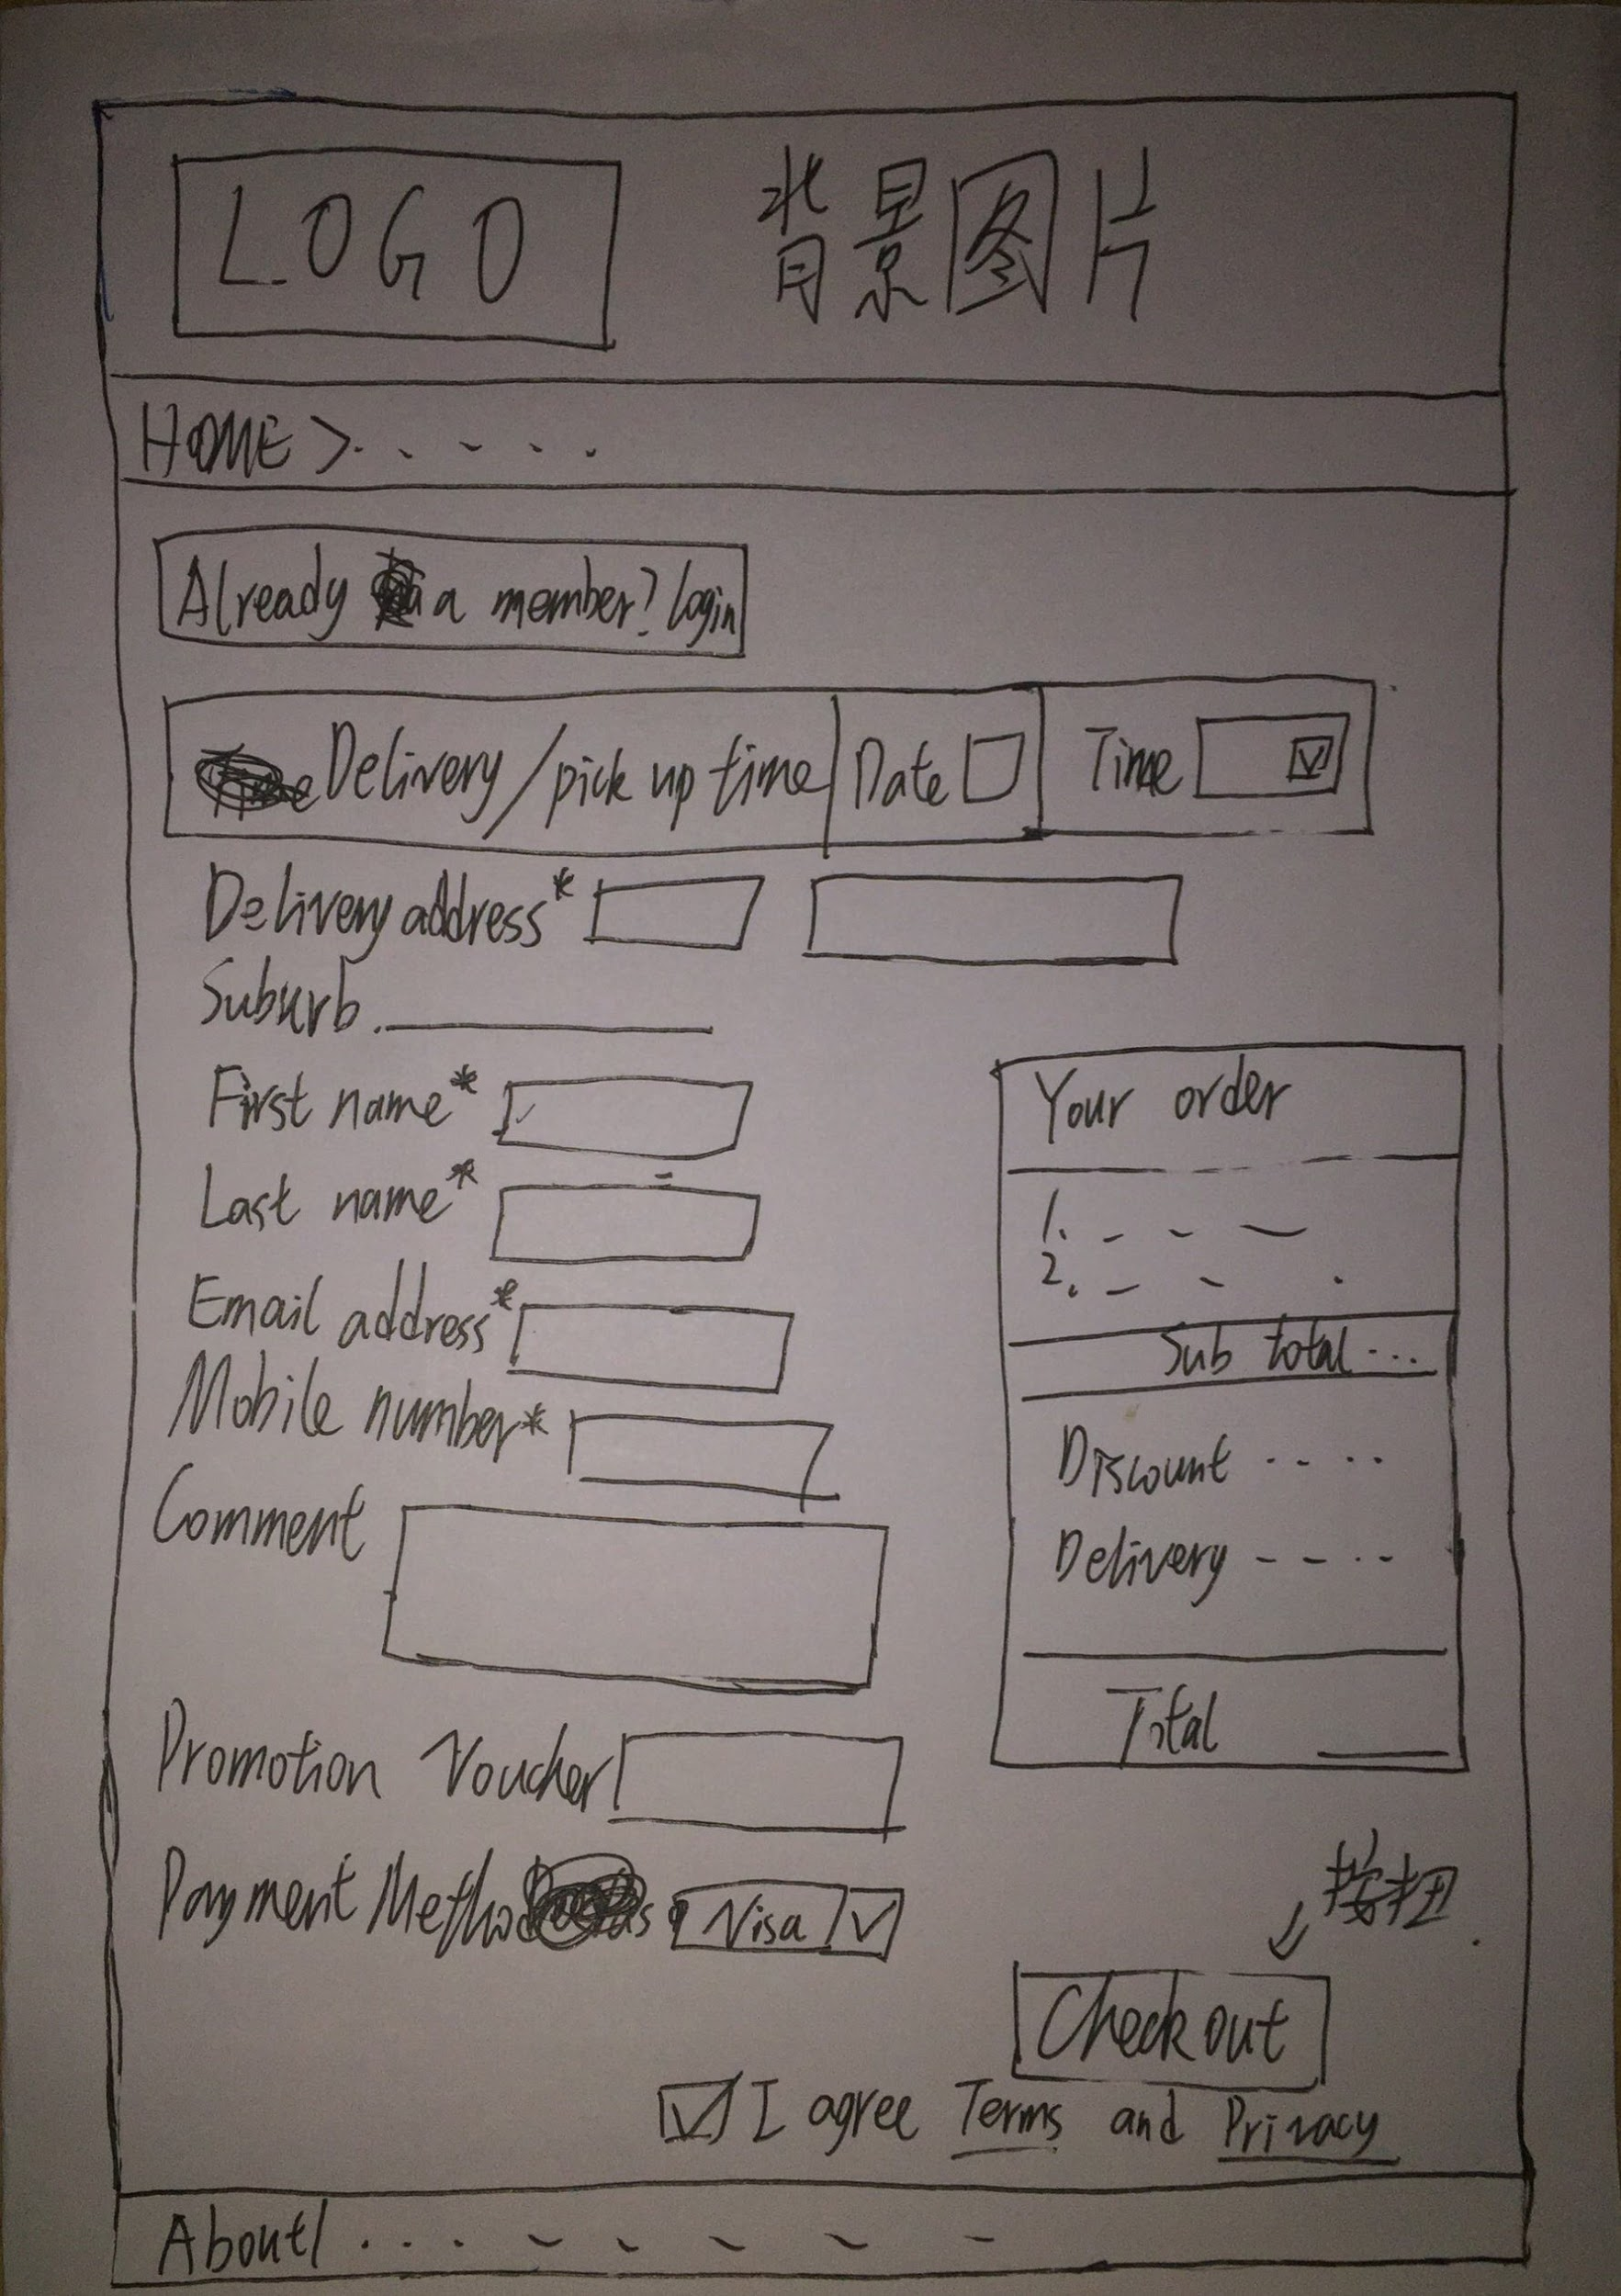 LOGO 背景图片
HOME > . . - . .
Already a member? login
Delivery/pick up time Date Time
Delivery address*
Suburb
First name*
Last name*
Email address*
Mobile number*
Comment
Promotion Voucher
Payment Method Visa
Your order
1. - - —
2. - - .
Sub total ...
Discount - - . .
Delivery - - . -
Total
按扭
Check out
I agree Terms and Privacy
About/ . . . - - - - -